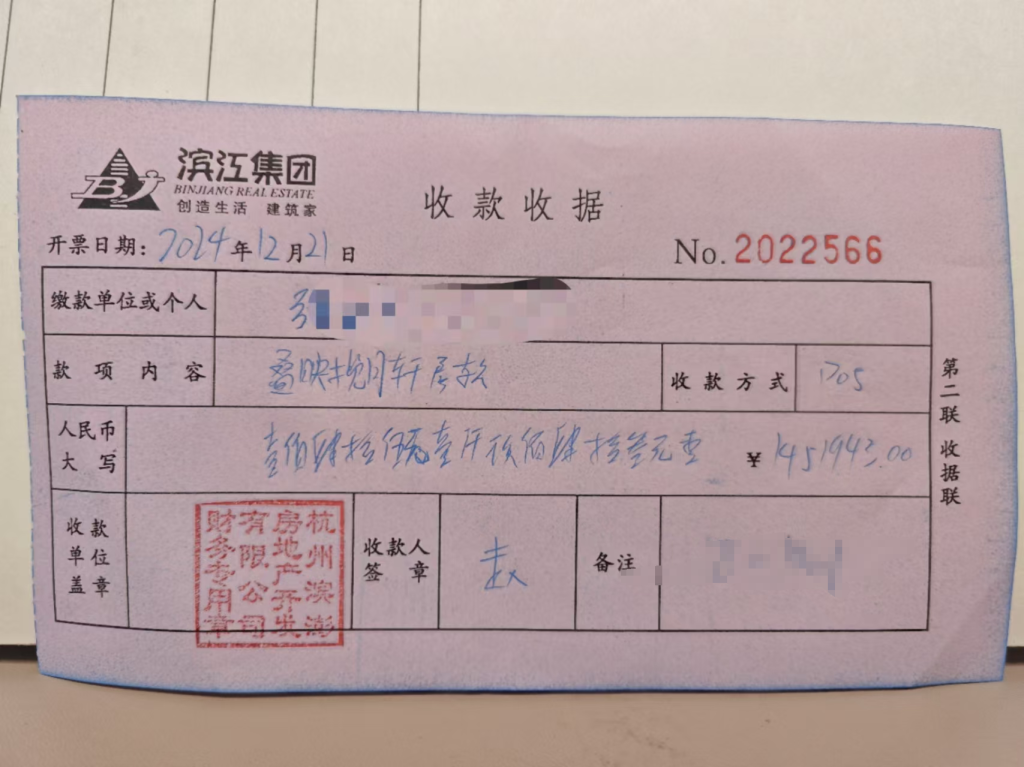 滨江集团
BINJIANG REAL ESTATE
创造生活 建筑家
收款收据
开票日期：2024年12月21日
No. 2022566
缴款单位或个人
款项内容 揽月轩房款 收款方式 POS
人民币大写 壹佰肆拾伍万壹仟玖佰肆拾叁元整 ¥1451943.00
收款单位盖章 杭州滨澎房地产开发有限公司财务专用章 收款人签章 备注
第二联 收据联